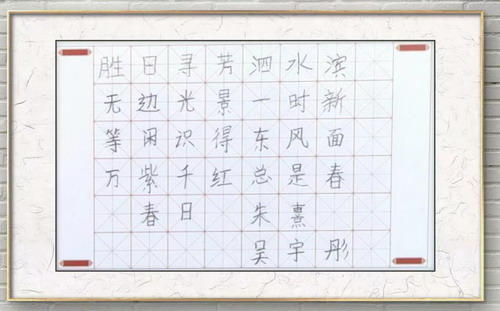 胜日寻芳泗水滨
无边光景一时新
等闲识得东风面
万紫千红总是春
春日 朱熹
吴宇彤